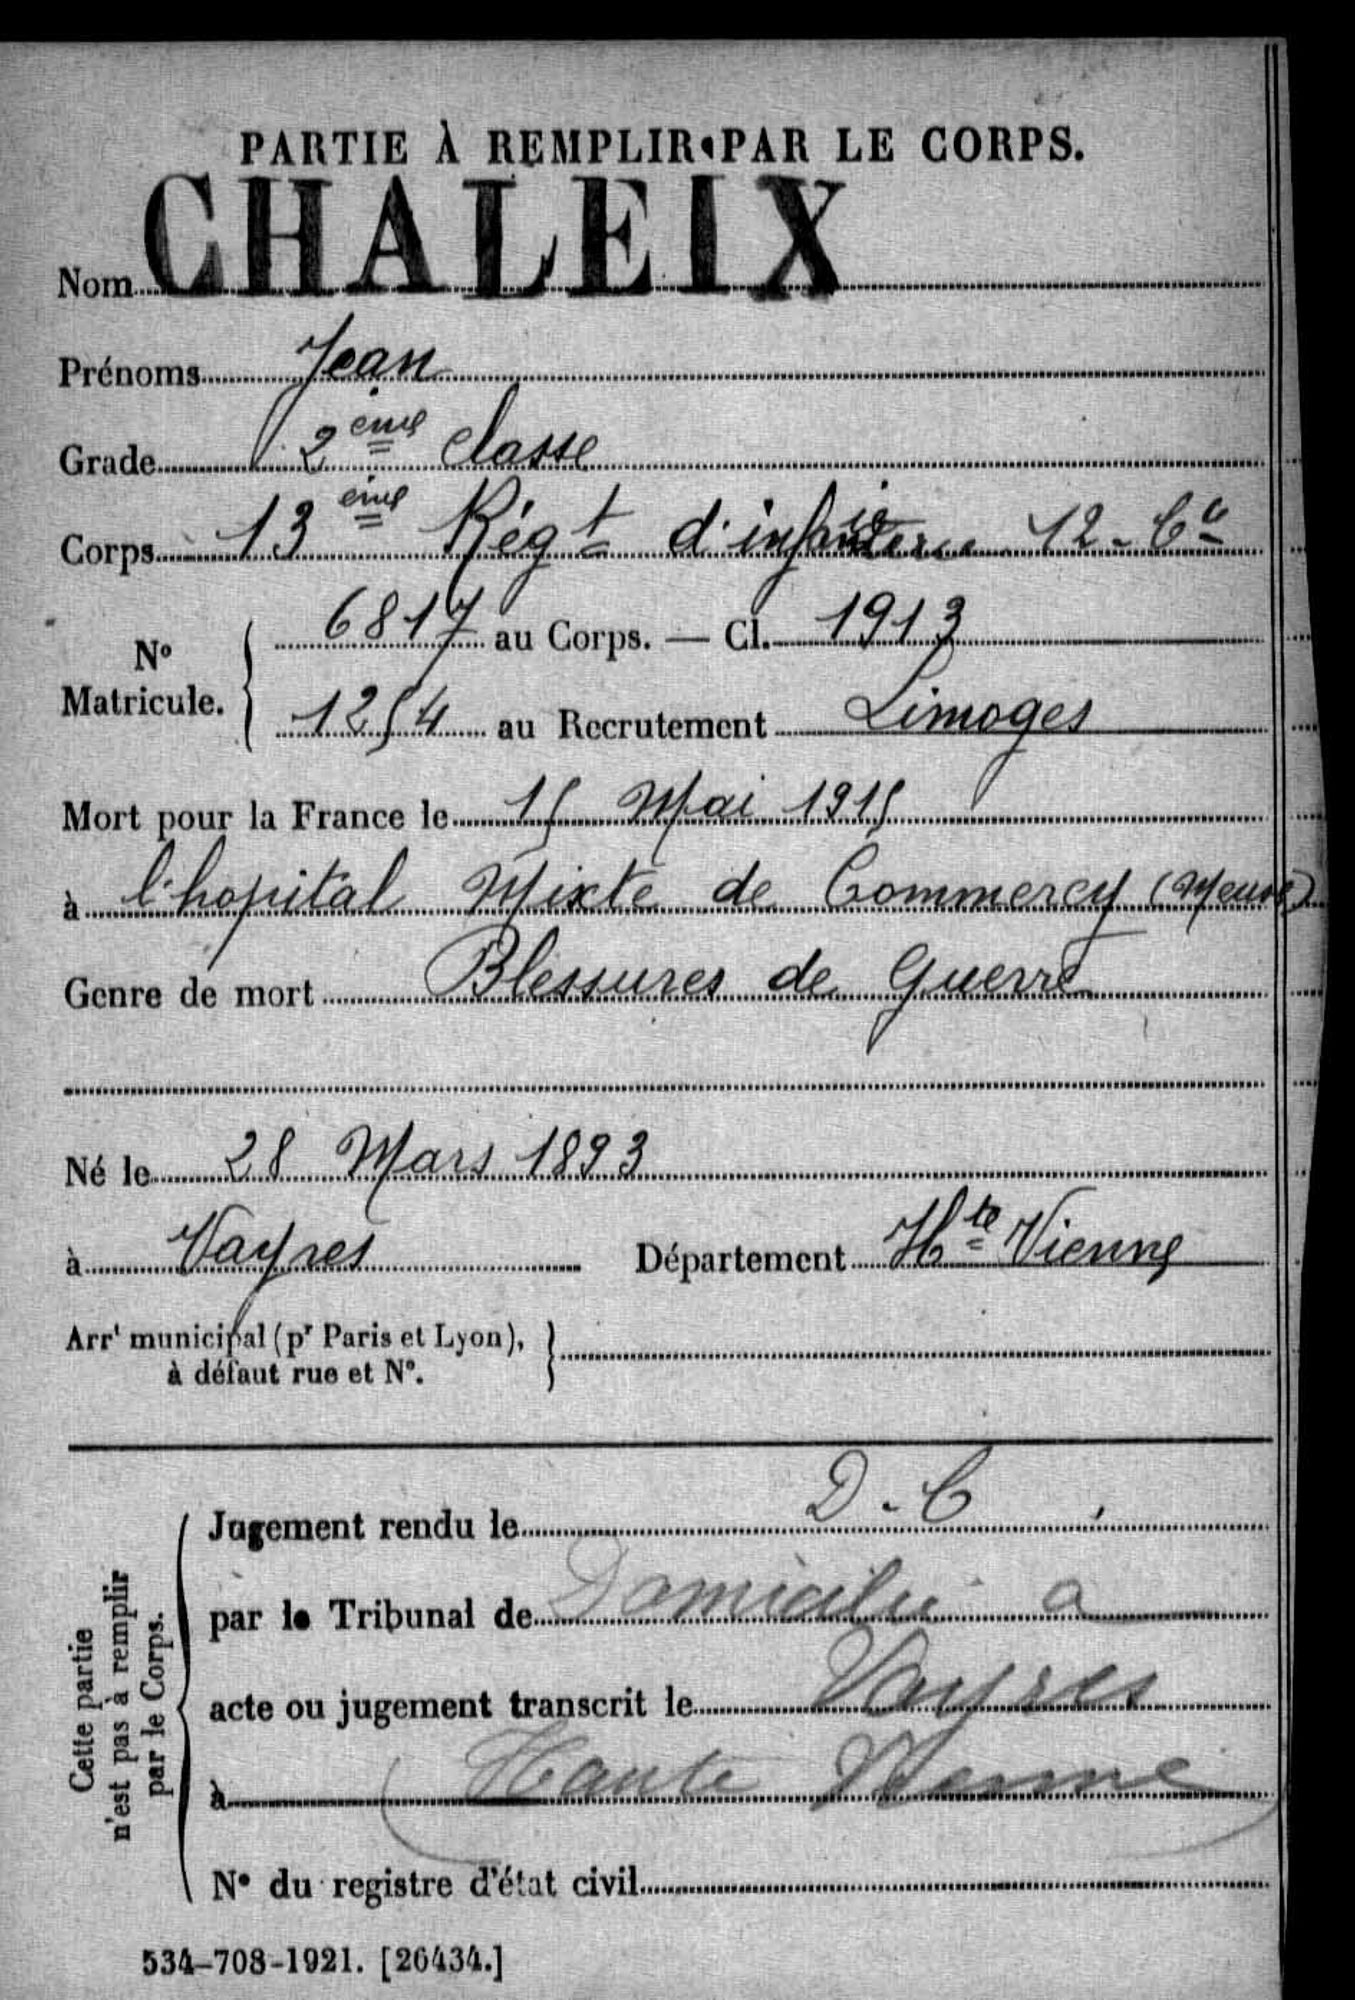 PARTIE À REMPLIR PAR LE CORPS.
Nom CHALEIX
Prénoms Jean
Grade 2ème classe
Corps 13ème Régt d'infanterie 12-Cie
No Matricule. 6817 au Corps. — Cl. 1913
1254 au Recrutement Limoges
Mort pour la France le 15 Mai 1915
à l'hopital Mixte de Commercy (Meuse)
Genre de mort Blessures de Guerre
Né le 28 Mars 1893
à Vayres Département Hte Vienne
Arrt municipal (pr Paris et Lyon),
à défaut rue et No.
Cette partie
n'est pas à remplir
par le Corps.
Jugement rendu le D-C
par le Tribunal de Domicilié a
acte ou jugement transcrit le Vayres
à (Haute Vienne)
No du registre d'état civil
534-708-1921. [26434.]